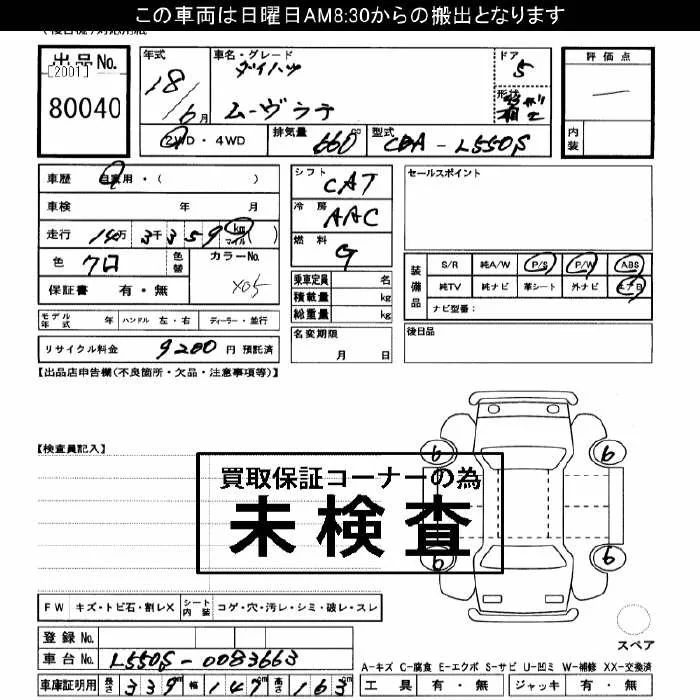 この車両は日曜日AM8:30からの搬出となります
出品No.
[2001]
80040
年式
18/6月
車名・グレード
ダイハツ
ムーヴラテ
ドア
5
形状
評価点
内装
2WD・4WD
排気量
660cc
型式
CBA-L550S
車歴 自家用・( )
車検 年 月
走行 14万3千359km マイル( )
色 クロ 色替 カラーNo. X05
保証書 有・無
シフト CAT
冷房 AAC
燃料 G
乗車定員 名
積載量 kg
総重量 kg
セールスポイント
装備品
S/R 純A/W P/S P/W ABS
純TV 純ナビ 革シート 外ナビ エアB
ナビ型番：
モデル年式 年 ハンドル 左・右 ディーラー・並行
名変期限 月 日
後日品
リサイクル料金 9200円 預託済
【出品店申告欄(不良箇所・欠品・注意事項等)】
【検査員記入】
6 6
6 6
買取保証コーナーの為
未検査
FW キズ・トビ石・割レX シート内装 コゲ・穴・汚レ・シミ・破レ・スレ
登録No.
車台No. L550S-0083663
車庫証明用 長さ 339cm 幅 147cm 高さ 163cm
スペア
A-キズ C-腐食 E-エクボ S-サビ U-凹ミ W-補修 XX-交換済
工具 有・無 ジャッキ 有・無